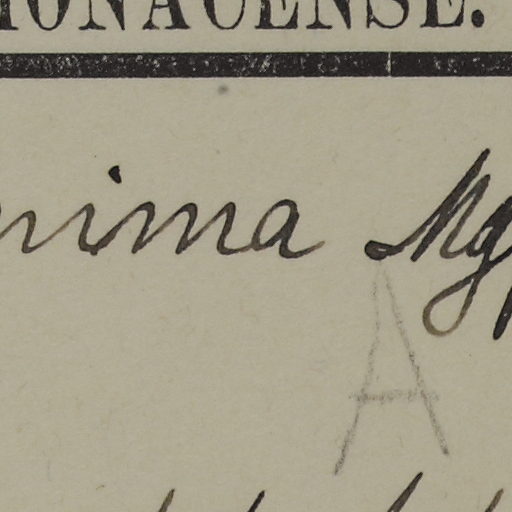 IONACENSE.
nima Mg
A